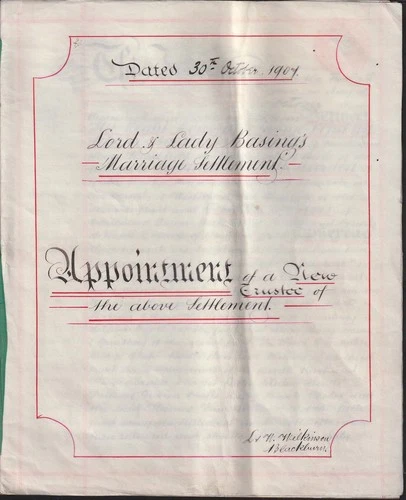 Dated 30th October 1907.
Lord & Lady Basing's
Marriage Settlement.
Appointment of a New
Trustee of
the above Settlement.
Wilkinson
Blackburn.